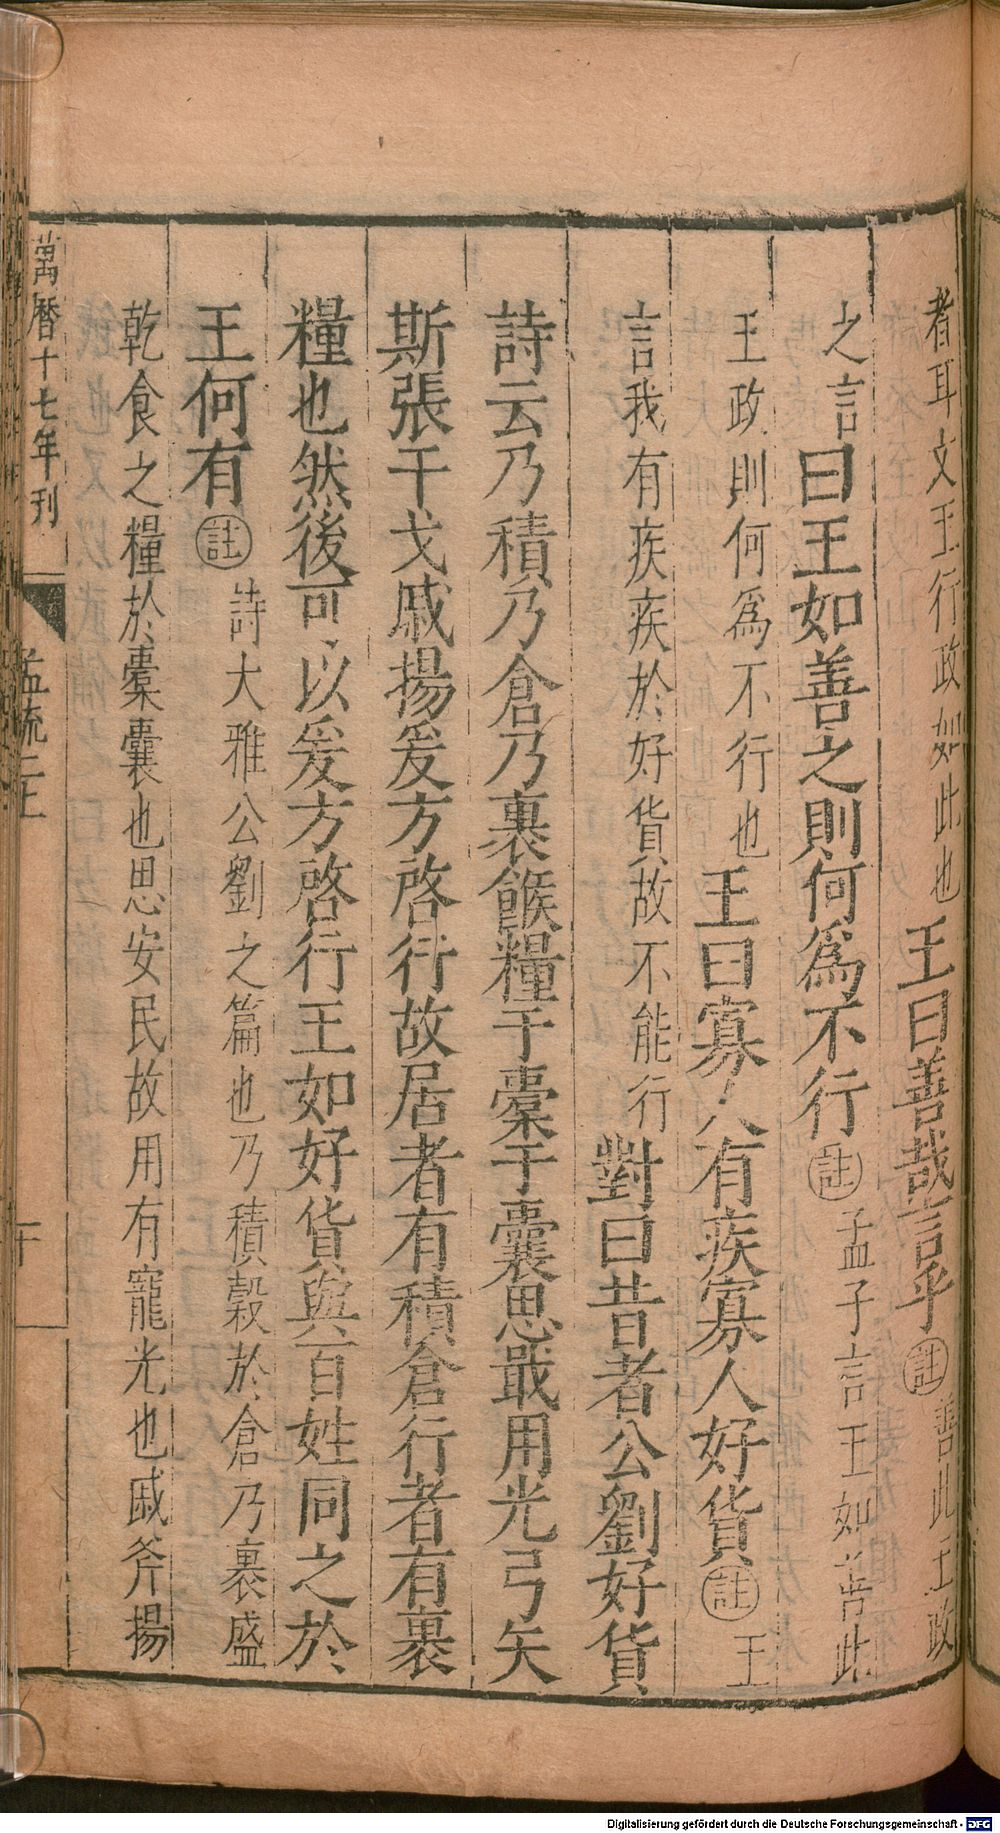 者耳文王行政如此也王曰善哉言乎註善此王政
之言曰王如善之則何為不行註孟子言王如善此
王政則何為不行也王曰寡人有疾寡人好貨註王
言我有疾疾於好貨故不能行對曰昔者公劉好貨
詩云乃積乃倉乃裹餱糧于橐于囊思戢用光弓矢
斯張干戈戚揚爰方啓行故居者有積倉行者有裹
糧也然後可以爰方啓行王如好貨與百姓同之於
王何有註詩大雅公劉之篇也乃積穀於倉乃裹盛
乾食之糧於橐囊也思安民故用有寵光也戚斧揚
萬曆十七年刊
孟疏二上
Digitalisierung gefördert durch die Deutsche Forschungsgemeinschaft - DFG